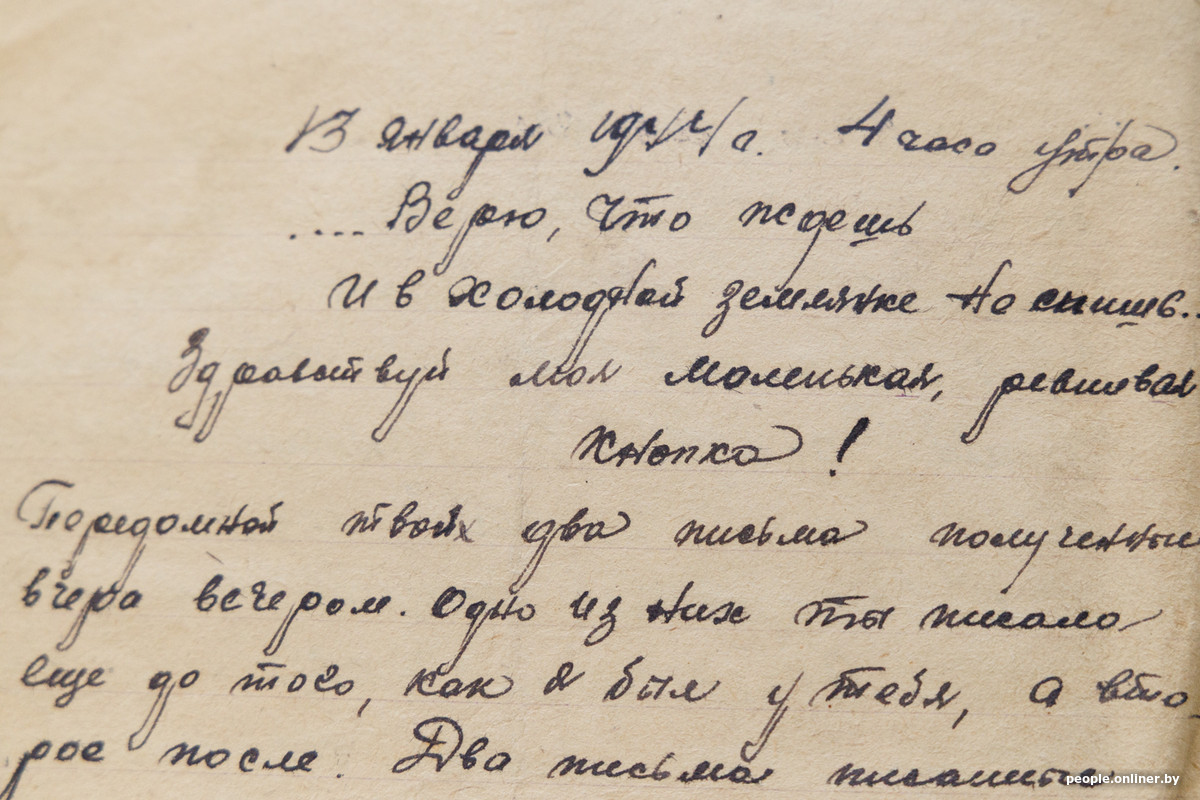 13 января 1944 г. 4 часа утра.
.... Верю, что ждешь
И в холодной землянке не спишь..
Здравствуй моя маленькая, ревнивая
Кнопка!
Передомной твоих два письма полученные
вчера вечером. Одно из них ты писала
еще до того, как я был у тебя, а вто
рое после. Два письма писанные
people.onliner.by